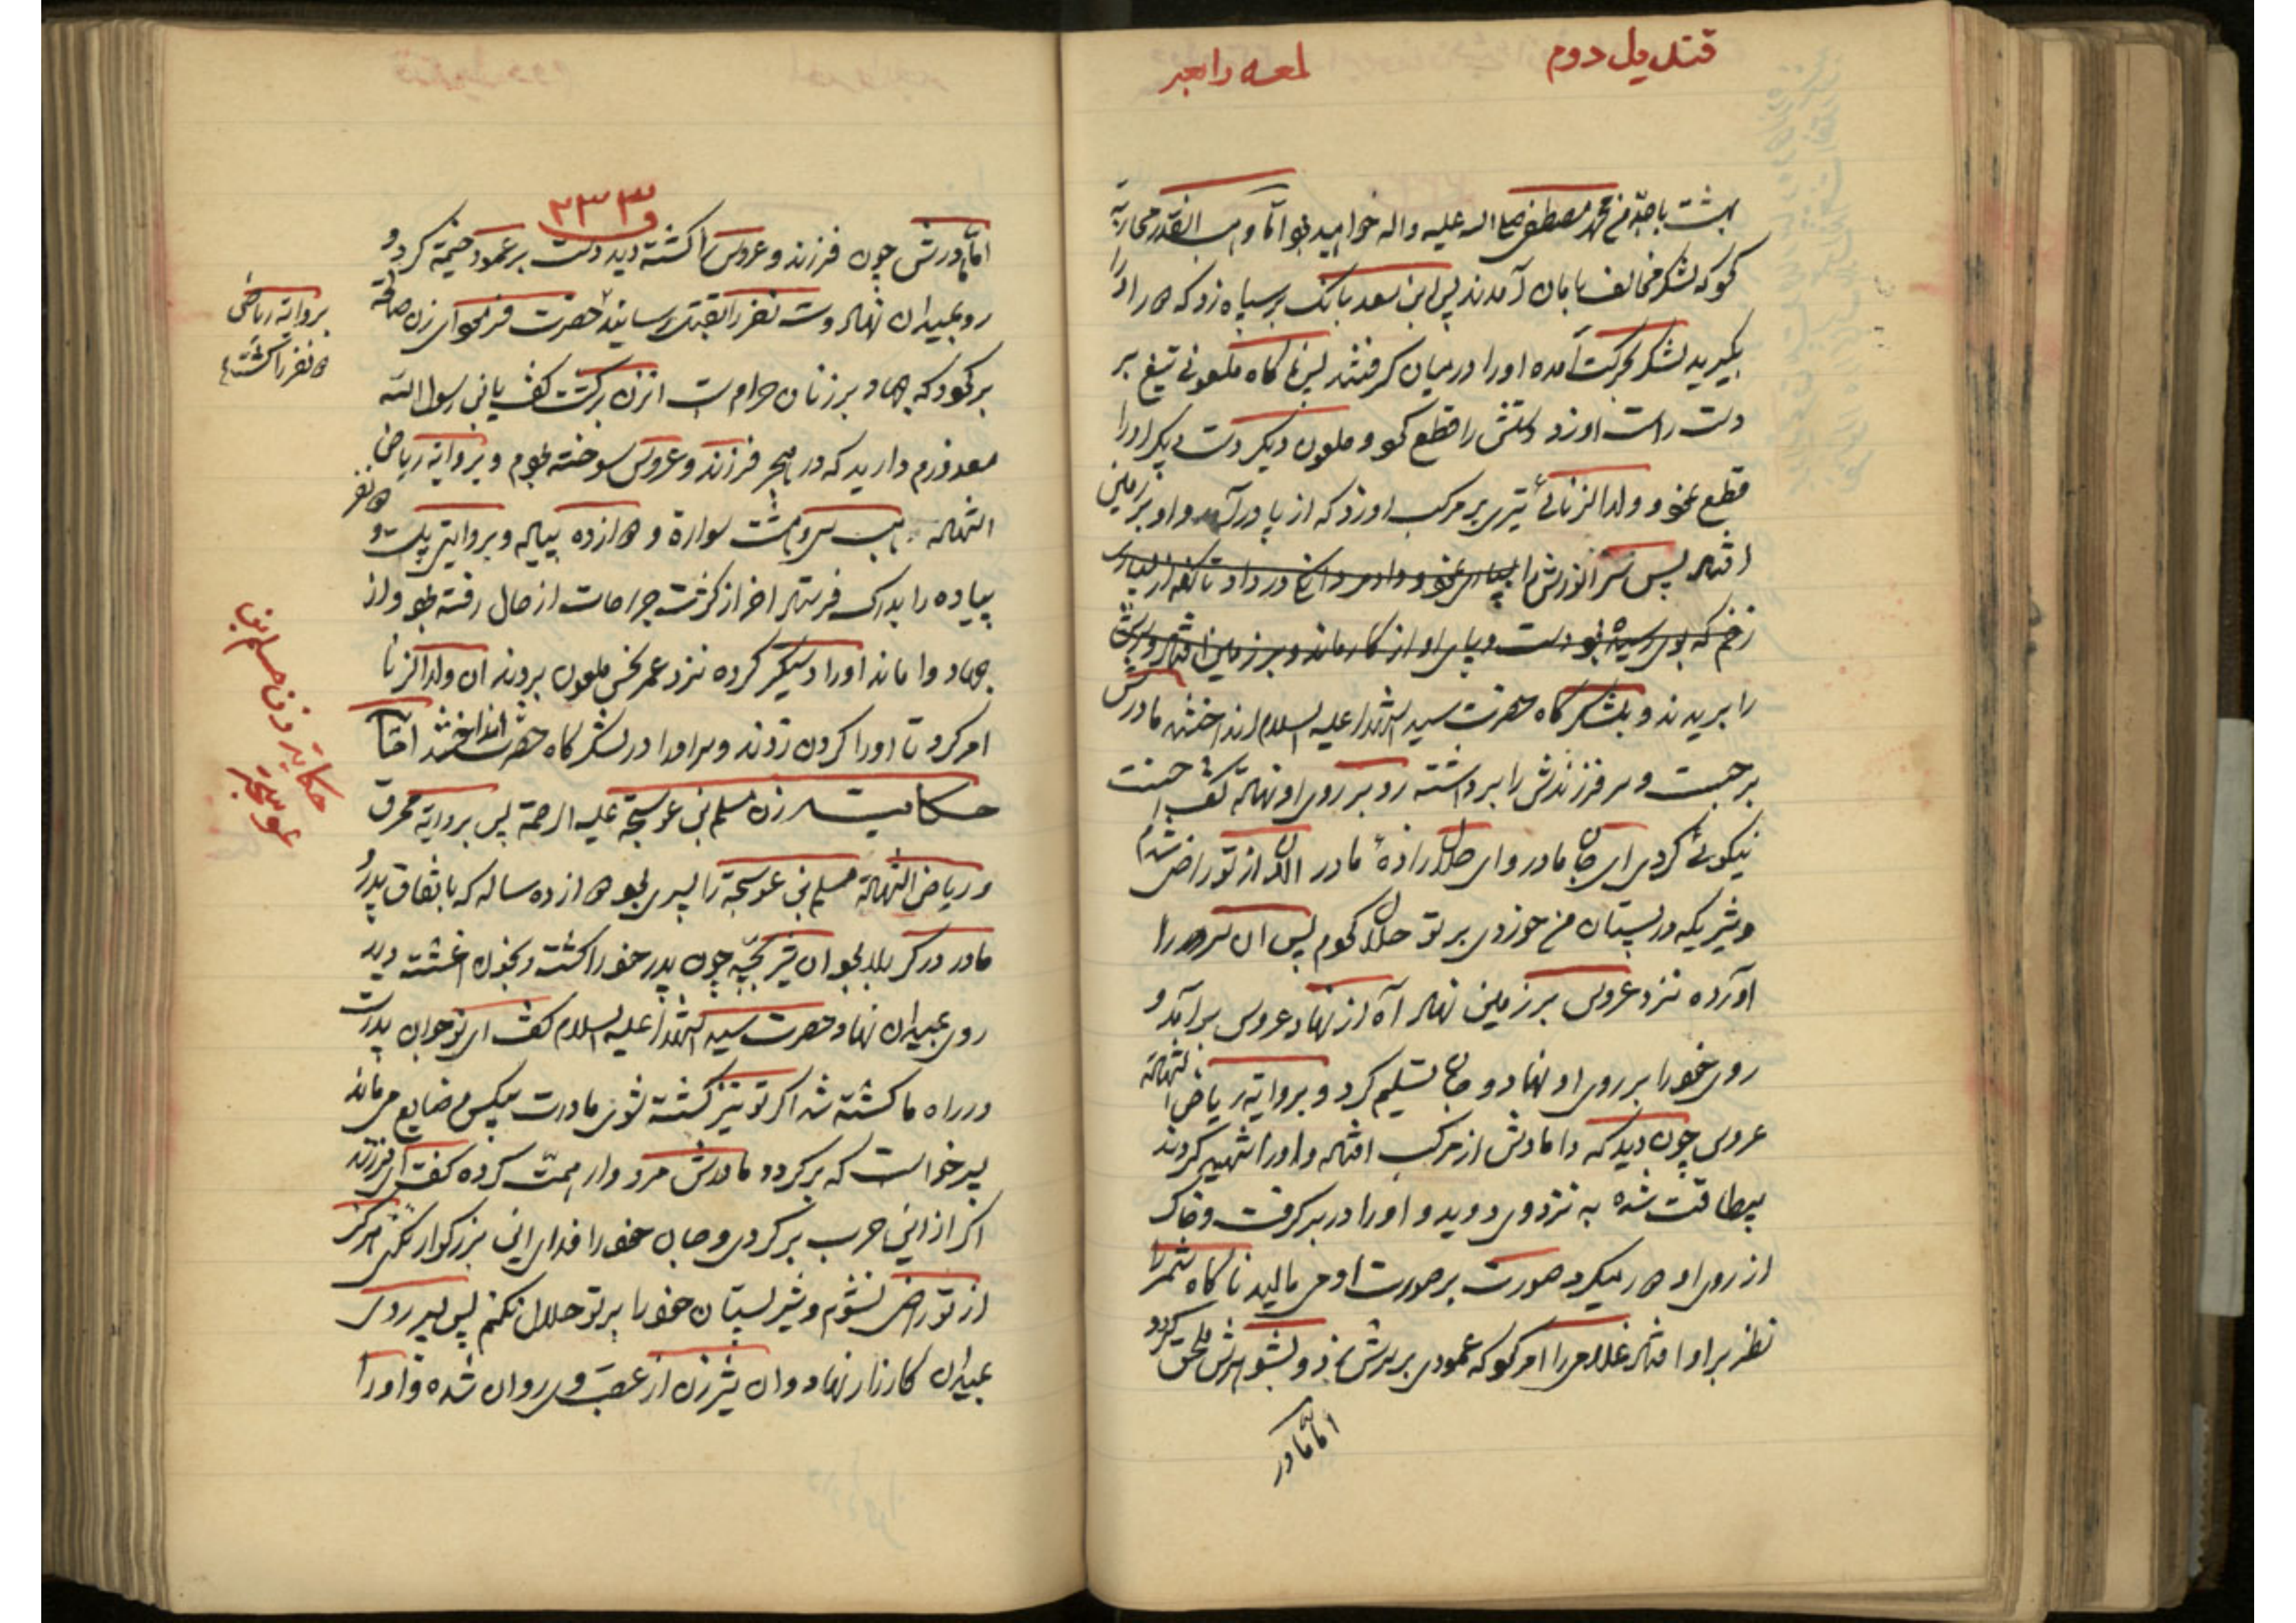 قندیل دوم
لمعه رابعه
بهشت با جدم محمد مصطفی صلی الله علیه واله خواهید بود اما وهب انقدر محاربه
که لشکر مخالف بامان آمدند پس ابن سعد بانک بر سپاه زد که او را
بگیرید لشکر بحرکت آمده او را در میان گرفتند پس ناگاه ملعونی تیغ بر
دست راست او زد دستش را قطع و ملعون دیگر دست دیگر او را
قطع نمود و ولد الزنائی تیری بر مرکب او زد که از پا در آمد و او بر زمین
افتاد پس سر انورش را
زخم که بوی رسیده بود دست و پای او از کار ماند و بر زمین افتاد و سرش
را بریدند و بلشکرگاه حضرت سید الشهدا علیه السلام انداختند مادرش
برجست و سر فرزندش را برداشته رو بر روی او نهاده گفت احسنت
نیکوئی کردی ای جان مادر و ای حلال زاده مادر الان از تو راضی شدم
و شیریکه در پستان من خوردی بر تو حلال کردم پس ان سر را
آورده نزد عروس بر زمین نهاد آه از نهاد عروس برآمد و
روی خود را بر روی او نهاد و جان تسلیم کرد و بروایة ریاض الشهادة
عروس چون دید که دامادش از مرکب افتاد و او را شهید کردند
بیطاقت شده به نزد وی دوید و او را در بر گرفت و خاک
از روی او میکرد صورت بر صورت او می مالید ناگاه شمر را
نظر بر او افتاد غلامی را امر که عمودی بر سرش زد و بشوهرش ملحق کردو
اما مادر
۲۳۳
اما مادرش چون فرزند و عروس را کشته دید دست بر عمود خیمه کرد و
رو بمیدان نهاد و سه نفر را بقتل رسانید حضرت فرمود ای زن صالحه
برگرد که جهاد بر زنان حرام است انزن برگشت گفت یابن رسول الله
معذورم دارید که در هجر فرزند و عروس سوخته بودم و بروایة ریاض
الشهادة وهب سی و هشت سواره و دوازده پیاله و بروایتی بیست و
پیاده را بدرک فرستاد اخر از کثرت جراحات از حال رفته بود و از
جهاد وا ماند او را دستگیر کرده نزد عمر نحس ملعون بردند ان ولد الزنا
امر کرد تا او را گردن زدند و سر او را در لشکرگاه حضرت انداختند
حکایت زن مسلم بن عوسجة علیه الرحمة پس بروایة محرق
و ریاض الشهادة مسلم بن عوسجة را پسری بود دوازده ساله که باتفاق پدر و
مادر در کربلا بود ان شیر بچه چون پدر خود را کشته و بخون اغشته دید
روی بمیدان نهاد حضرت سید الشهدا علیه السلام گفت ای نوجوان پدرت
در راه ما کشته شد اگر تو نیز کشته شوی مادرت بیکس و ضایع می ماند
پسر خواست که برگردد مادرش مردوار همت کرده گفت ای فرزند
اگر از این حرب برگردی و جان خود را فدای این بزرگوار نکنی هرگز
از تو راضی نشوم و شیر پستان خود را بر تو حلال نکنم پس پسر روی
بمیدان کارزار نهاد و ان شیرزن از عقب وی روان شده و او را
بروایة ریاض
نفر را کشت
حکایة زن مسلم بن
عوسجة